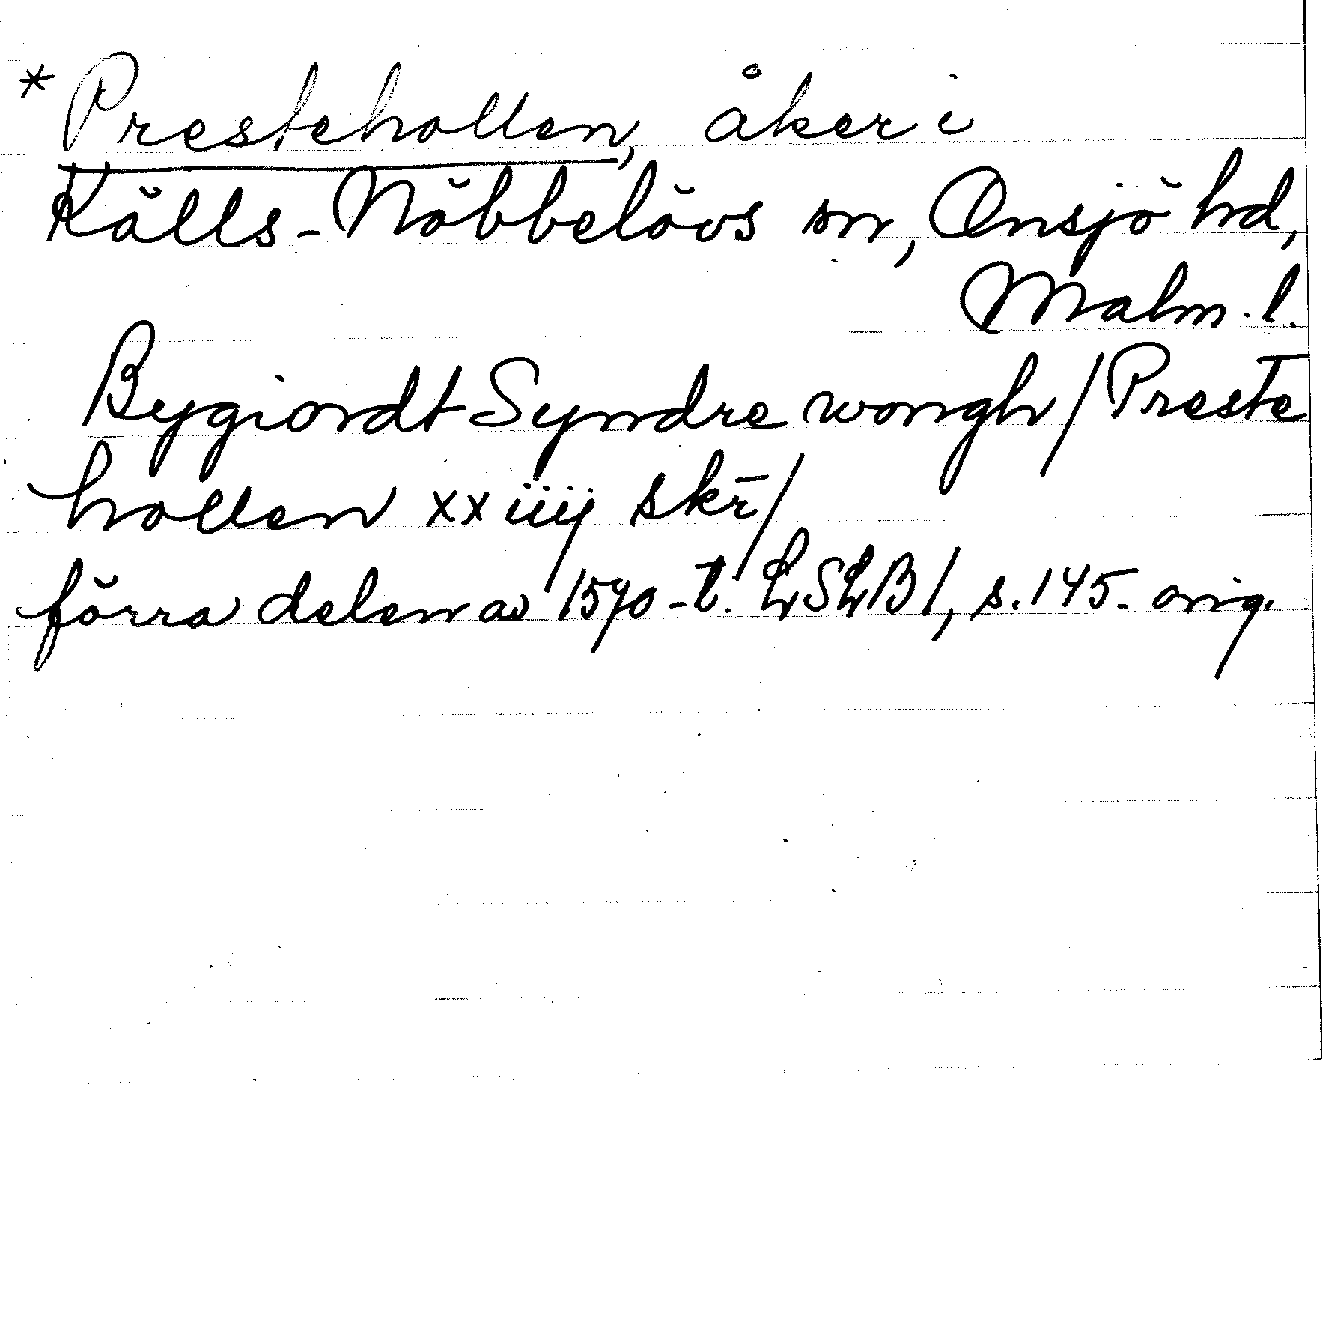 * Prestehollen, åker i
Källs-Nöbbelövs sn, Onsjö hd,
Malm. l.
Bygiordt Syndre wongh / Preste
hollen xx iiij skr̄ /
förra delen av 1570-t. LSLB 1, s. 145. orig.